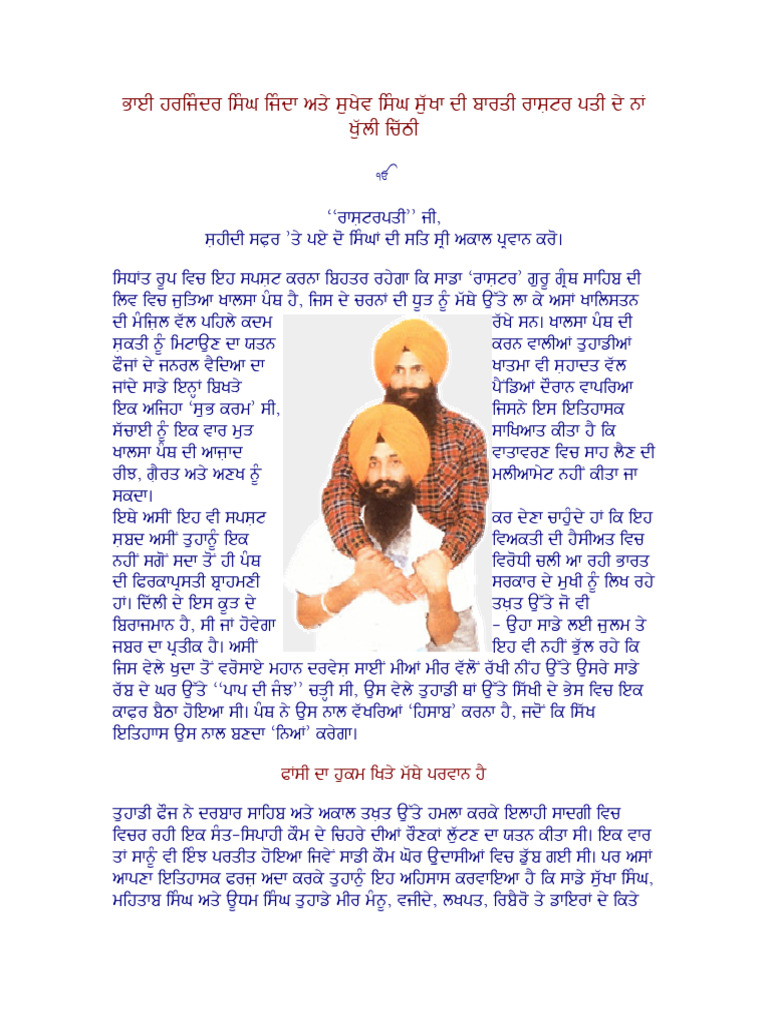 ਭਾਈ ਹਰਜਿੰਦਰ ਸਿੰਘ ਜਿੰਦਾ ਅਤੇ ਸੁਖੇਵ ਸਿੰਘ ਸੁੱਖਾ ਦੀ ਬਾਰਤੀ ਰਾਸ਼ਟਰ ਪਤੀ ਦੇ ਨਾਂ
ਖੁੱਲੀ ਚਿੱਠੀ
ੴ
‘‘ਰਾਸ਼ਟਰਪਤੀ’’ ਜੀ,
ਸ਼ਹੀਦੀ ਸਫ਼ਰ ’ਤੇ ਪਏ ਦੋ ਸਿੰਘਾਂ ਦੀ ਸਤਿ ਸ੍ਰੀ ਅਕਾਲ ਪ੍ਰਵਾਨ ਕਰੋ।
ਸਿਧਾਂਤ ਰੂਪ ਵਿਚ ਇਹ ਸਪਸ਼ਟ ਕਰਨਾ ਬਿਹਤਰ ਰਹੇਗਾ ਕਿ ਸਾਡਾ ‘ਰਾਸ਼ਟਰ’ ਗੁਰੂ ਗ੍ਰੰਥ ਸਾਹਿਬ ਦੀ
ਲਿਵ ਵਿਚ ਜੁੜਿਆ ਖਾਲਸਾ ਪੰਥ ਹੈ, ਜਿਸ ਦੇ ਚਰਨਾਂ ਦੀ ਧੂੜ ਨੂੰ ਮੱਥੇ ਉੱਤੇ ਲਾ ਕੇ ਅਸਾਂ ਖਾਲਿਸਤਨ
ਦੀ ਮੰਜ਼ਿਲ ਵੱਲ ਪਹਿਲੇ ਕਦਮ ਰੱਖੇ ਸਨ। ਖਾਲਸਾ ਪੰਥ ਦੀ
ਸ਼ਕਤੀ ਨੂੰ ਮਿਟਾਉਣ ਦਾ ਯਤਨ ਕਰਨ ਵਾਲੀਆਂ ਤੁਹਾਡੀਆਂ
ਫੌਜਾਂ ਦੇ ਜਨਰਲ ਵੈਦਿਆ ਦਾ ਖਾਤਮਾ ਵੀ ਸ਼ਹਾਦਤ ਵੱਲ
ਜਾਂਦੇ ਸਾਡੇ ਇਨ੍ਹਾਂ ਬਿਖੜੇ ਪੈਂਡਿਆਂ ਦੌਰਾਨ ਵਾਪਰਿਆ
ਇਕ ਅਜਿਹਾ ‘ਸੁਭ ਕਰਮ’ ਸੀ, ਜਿਸਨੇ ਇਸ ਇਤਿਹਾਸਕ
ਸੱਚਾਈ ਨੂੰ ਇਕ ਵਾਰ ਮੁੜ ਸਾਖਿਆਤ ਕੀਤਾ ਹੈ ਕਿ
ਖਾਲਸਾ ਪੰਥ ਦੀ ਆਜ਼ਾਦ ਵਾਤਾਵਰਣ ਵਿਚ ਸਾਹ ਲੈਣ ਦੀ
ਰੀਝ, ਗ਼ੈਰਤ ਅਤੇ ਅਣਖ ਨੂੰ ਮਲੀਆਮੇਟ ਨਹੀਂ ਕੀਤਾ ਜਾ
ਸਕਦਾ।
ਇਥੇ ਅਸੀਂ ਇਹ ਵੀ ਸਪਸ਼ਟ ਕਰ ਦੇਣਾ ਚਾਹੁੰਦੇ ਹਾਂ ਕਿ ਇਹ
ਸ਼ਬਦ ਅਸੀਂ ਤੁਹਾਨੂੰ ਇਕ ਵਿਅਕਤੀ ਦੀ ਹੈਸੀਅਤ ਵਿਚ
ਨਹੀਂ ਸਗੋਂ ਸਦਾ ਤੋਂ ਹੀ ਪੰਥ ਵਿਰੋਧੀ ਚਲੀ ਆ ਰਹੀ ਭਾਰਤ
ਦੀ ਫਿਰਕਾਪ੍ਰਸਤੀ ਬ੍ਰਾਹਮਣੀ ਸਰਕਾਰ ਦੇ ਮੁਖੀ ਨੂੰ ਲਿਖ ਰਹੇ
ਹਾਂ। ਦਿੱਲੀ ਦੇ ਇਸ ਕੂੜ ਦੇ ਤਖ਼ਤ ਉੱਤੇ ਜੋ ਵੀ
ਬਿਰਾਜਮਾਨ ਹੈ, ਸੀ ਜਾਂ ਹੋਵੇਗਾ – ਉਹਾ ਸਾਡੇ ਲਈ ਜੁਲਮ ਤੇ
ਜਬਰ ਦਾ ਪ੍ਰਤੀਕ ਹੈ। ਅਸੀਂ ਇਹ ਵੀ ਨਹੀਂ ਭੁੱਲ ਰਹੇ ਕਿ
ਜਿਸ ਵੇਲੇ ਖੁਦਾ ਤੋਂ ਵਰੋਸਾਏ ਮਹਾਨ ਦਰਵੇਸ਼ ਸਾਈਂ ਮੀਆਂ ਮੀਰ ਵੱਲੋਂ ਰੱਖੀ ਨੀਂਹ ਉੱਤੇ ਉਸਰੇ ਸਾਡੇ
ਰੱਬ ਦੇ ਘਰ ਉੱਤੇ ‘‘ਪਾਪ ਦੀ ਜੰਝ’’ ਚੜ੍ਹੀ ਸੀ, ਉਸ ਵੇਲੇ ਤੁਹਾਡੀ ਥਾਂ ਉੱਤੇ ਸਿੱਖੀ ਦੇ ਭੇਸ ਵਿਚ ਇਕ
ਕਾਫ਼ਰ ਬੈਠਾ ਹੋਇਆ ਸੀ। ਪੰਥ ਨੇ ਉਸ ਨਾਲ ਵੱਖਰਿਆਂ ‘ਹਿਸਾਬ’ ਕਰਨਾ ਹੈ, ਜਦੋਂ ਕਿ ਸਿੱਖ
ਇਤਿਹਾਸ ਉਸ ਨਾਲ ਬਣਦਾ ‘ਨਿਆਂ’ ਕਰੇਗਾ।
ਫਾਂਸੀ ਦਾ ਹੁਕਮ ਖਿੜੇ ਮੱਥੇ ਪਰਵਾਨ ਹੈ
ਤੁਹਾਡੀ ਫੌਜ ਨੇ ਦਰਬਾਰ ਸਾਹਿਬ ਅਤੇ ਅਕਾਲ ਤਖ਼ਤ ਉੱਤੇ ਹਮਲਾ ਕਰਕੇ ਇਲਾਹੀ ਸਾਦਗੀ ਵਿਚ
ਵਿਚਰ ਰਹੀ ਇਕ ਸੰਤ-ਸਿਪਾਹੀ ਕੌਮ ਦੇ ਚਿਹਰੇ ਦੀਆਂ ਰੌਣਕਾਂ ਲੁੱਟਣ ਦਾ ਯਤਨ ਕੀਤਾ ਸੀ। ਇਕ ਵਾਰ
ਤਾਂ ਸਾਨੂੰ ਵੀ ਇੰਝ ਪਰਤੀਤ ਹੋਇਆ ਜਿਵੇਂ ਸਾਡੀ ਕੌਮ ਘੋਰ ਉਦਾਸੀਆਂ ਵਿਚ ਡੁੱਬ ਗਈ ਸੀ। ਪਰ ਅਸਾਂ
ਆਪਣਾ ਇਤਿਹਾਸਕ ਫਰਜ਼ ਅਦਾ ਕਰਕੇ ਤੁਹਾਨੂੰ ਇਹ ਅਹਿਸਾਸ ਕਰਵਾਇਆ ਹੈ ਕਿ ਸਾਡੇ ਸੁੱਖਾ ਸਿੰਘ,
ਮਹਿਤਾਬ ਸਿੰਘ ਅਤੇ ਊਧਮ ਸਿੰਘ ਤੁਹਾਡੇ ਮੀਰ ਮੰਨੂ, ਵਜੀਦੇ, ਲਖਪਤ, ਰਿਬੈਰੋ ਤੇ ਡਾਇਰਾਂ ਦੇ ਕਿਤੇ